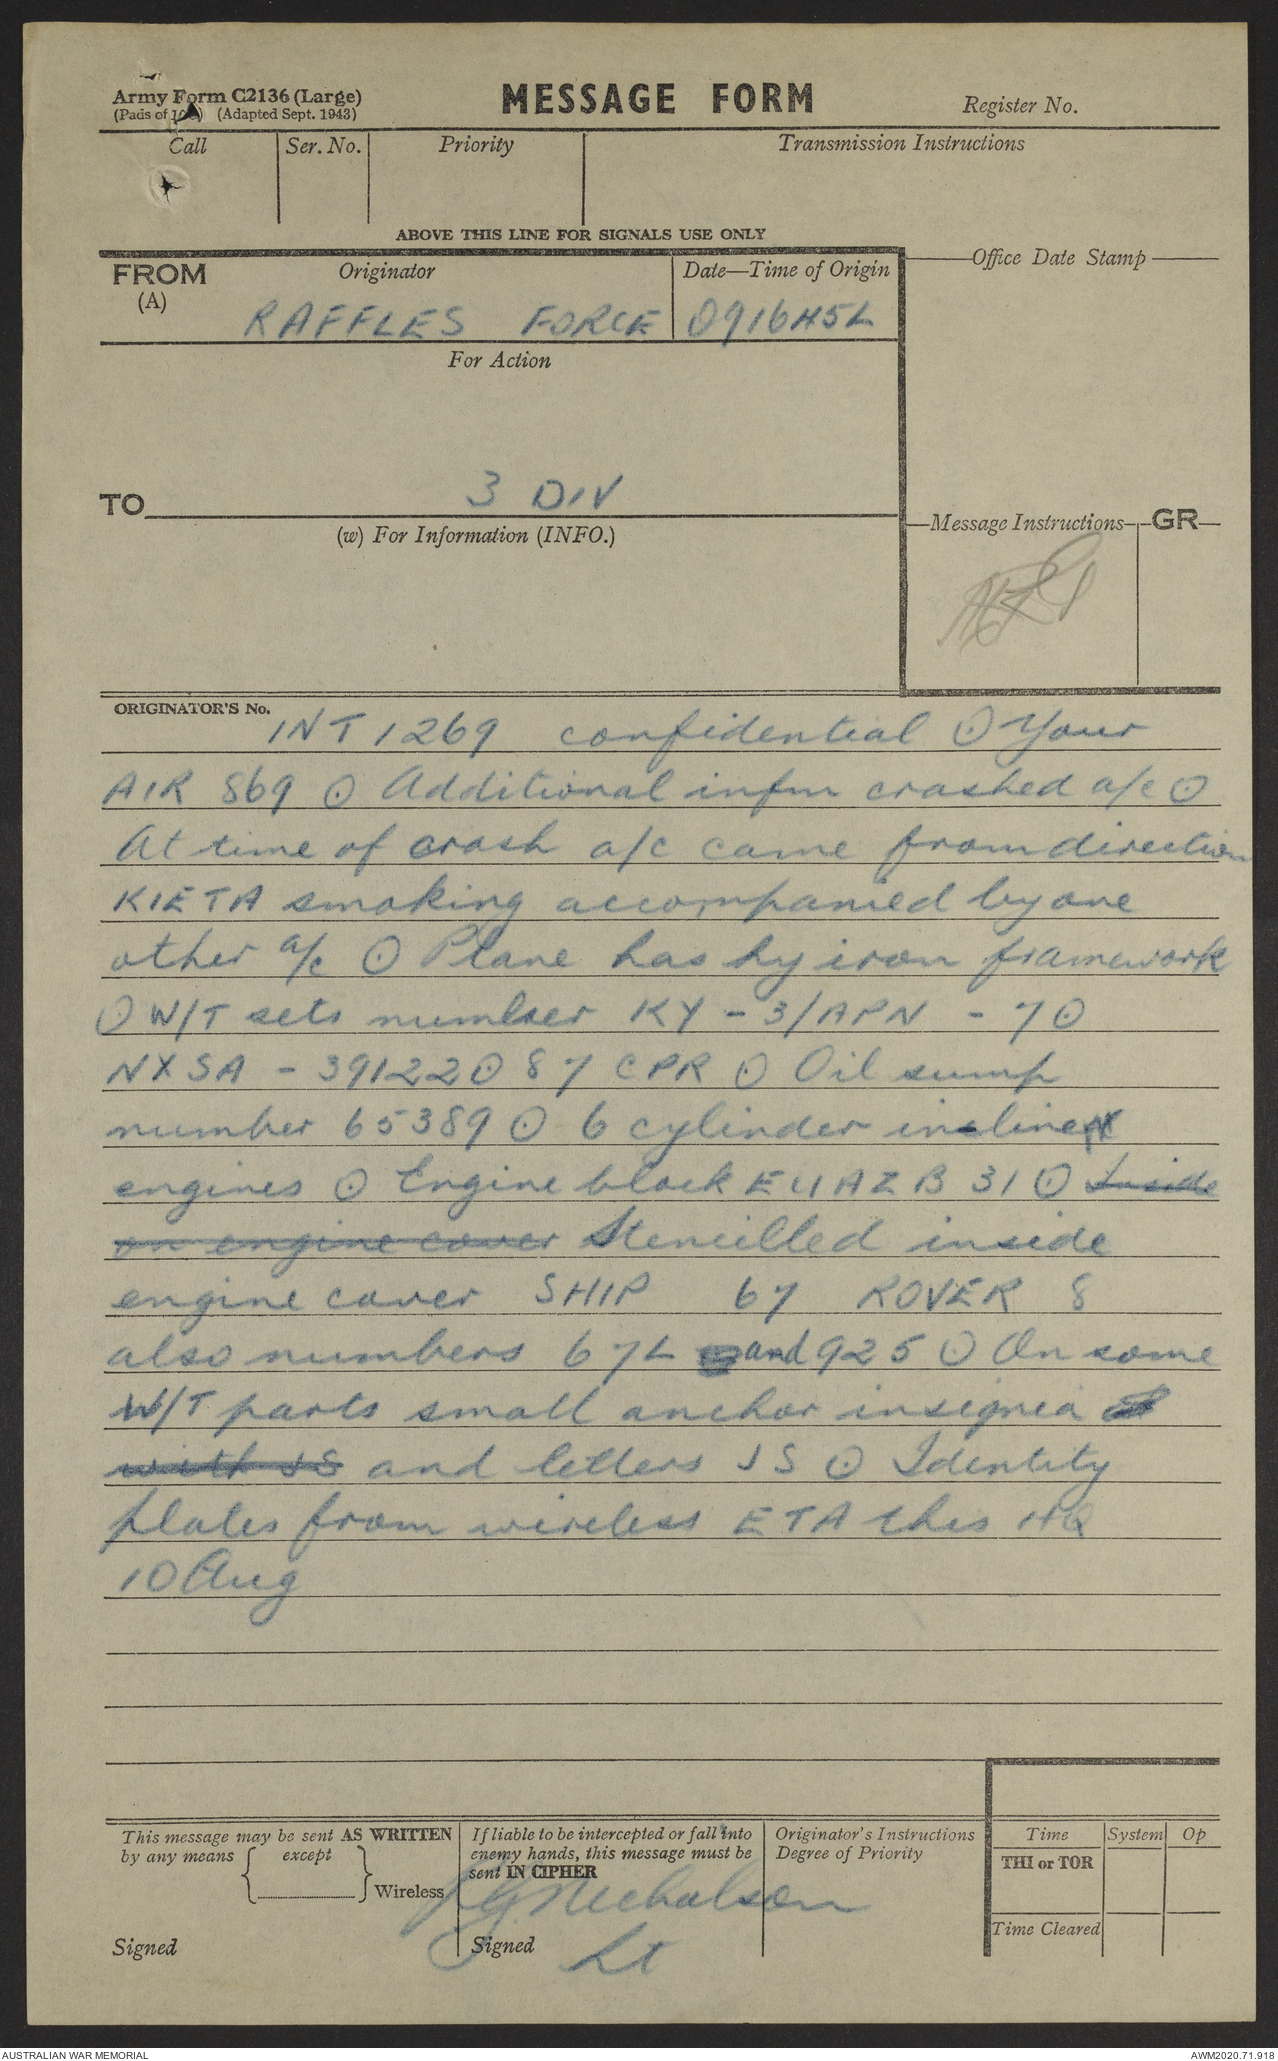 Army Form C2136 (Large)
(Pads of 100) (Adapted Sept. 1943)
MESSAGE FORM
Register No.
Call
Ser. No.
Priority
Transmission Instructions
ABOVE THIS LINE FOR SIGNALS USE ONLY
FROM
(A)
Originator
RAFFLES FORCE
Date—Time of Origin
091645L
Office Date Stamp
For Action
TO
3 DIV
(w) For Information (INFO.)
Message Instructions
GR
ORIGINATOR'S No.
INT 1269 confidential ⊙ Your
AIR 869 ⊙ Additional infm crashed a/c ⊙
At time of crash a/c came from direction
KIETA smoking accompanied by one
other a/c ⊙ Plane has hy iron framework
⊙ W/T sets number KY - 3/APN - 7 ⊙
NXSA - 39122 ⊙ 87 CPR ⊙ Oil sump
number 65389 ⊙ 6 cylinder inline
engines ⊙ Engine block E41AZB 31 ⊙ Inside
on engine cover Stencilled inside
engine cover SHIP 67 ROVER 8
also numbers 67L and 925 ⊙ On some
W/T parts small anchor insignia
with JS and letters JS ⊙ Identity
plates from wireless ETA this HQ
10 Aug
This message may be sent AS WRITTEN
by any means { except } Wireless
Signed
If liable to be intercepted or fall into
enemy hands, this message must be
sent IN CIPHER
G Nicholson
Signed Lt
Originator's Instructions
Degree of Priority
Time
System
Op
THI or TOR
Time Cleared
AUSTRALIAN WAR MEMORIAL
AWM2020.71.918